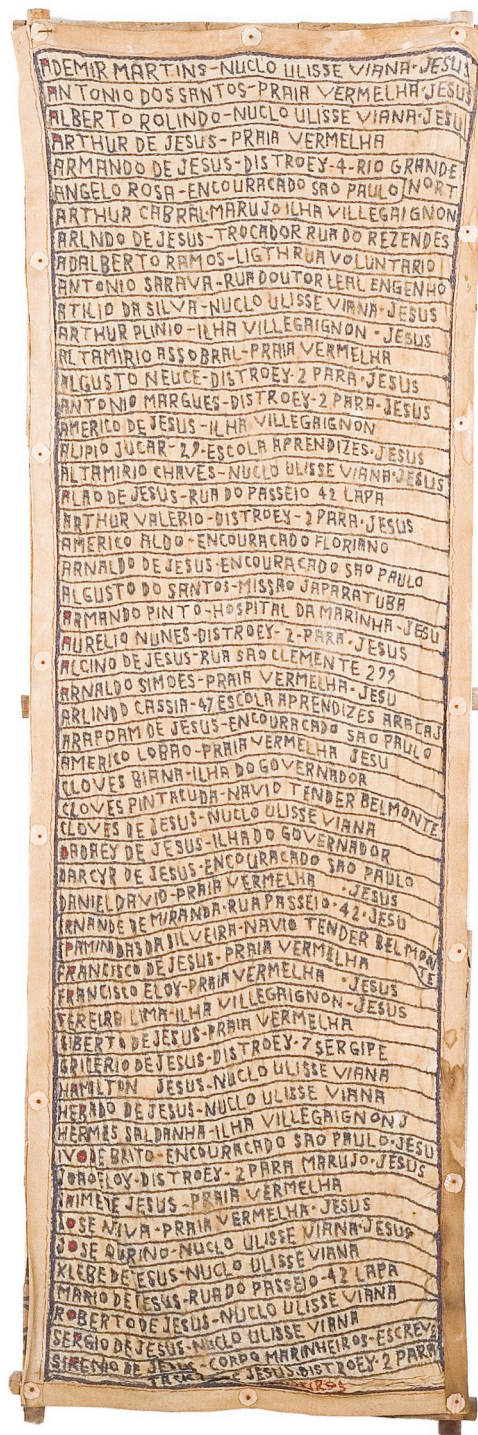 ADEMIR MARTINS-NUCLO ULISSE VIANA-JESUS
ANTONIO DOS SANTOS-PRAIA VERMELHA-JESUS
ALBERTO ROLINDO-NUCLO ULISSE VIANA-JESU
ARTHUR DE JESUS-PRAIA VERMELHA
ARMANDO DE JESUS-DISTROEY-4-RIO GRANDE
ANGELO ROSA-ENCOURACADO SAO PAULO NORT
ARTHUR CABRAL-MARUJO ILHA VILLEGAIGNON
ARLNDO DE JESUS-TROCADOR RUA DO REZENDES
ADALBERTO RAMOS-LIGTH RUA VOLUNTARIO
ANTONIO SARAVA-RUA DOUTOR LEAL ENGENHO
ATILIO DA SILVA-NUCLO ULISSE VIANA-JESUS
ARTHUR PLINIO-ILHA VILLEGAIGNON-JESUS
ALTAMIRIO ASSOBRAL-PRAIA VERMELHA
ALGUSTO NEUCE-DISTROEY-2 PARA-JESUS
ANTONIO MARGUES-DISTROEY-2 PARA-JESUS
AMERICO DE JESUS-ILHA VILLEGAIGNON
ALIPIO JUCAR-29-ESCOLA APRENDIZES-JESUS
ALTAMIRIO CHAVES-NUCLO ULISSE VIANA-JESUS
ALAO DE JESUS-RUA DO PASSEIO 42 LAPA
ARTHUR VALERIO-DISTROEY-2 PARA-JESUS
AMERICO ALDO-ENCOURACADO FLORIANO
ARNALDO DE JESUS-ENCOURACADO SAO PAULO
ALGUSTO DO SANTOS-MISSAO JAPARATUBA
ARMANDO PINTO-HOSPITAL DA MARINHA-JESU
AURELIO NUNES-DISTROEY-2-PARA-JESUS
ALCINO DE JESUS-RUA SAO CLEMENTE 299
ARNALDO SIMOES-PRAIA VERMELHA-JESU
ARLINDO CASSIA-47 ESCOLA APRENDIZES ARACAJ
ARAPOAM DE JESUS-ENCOURACADO SAO PAULO
AMERICO LOBAO-PRAIA VERMELHA JESU
CLOVES BIANA-ILHA DO GOVERNADOR
CLOVES PINTACUDA-NAVIO TENDER BELMONTE
CLOVES DE JESUS-NUCLO ULISSE VIANA
DE JESUS-ILHA DO GOVERNADOR
DARCYR DE JESUS-ENCOURACADO SAO PAULO
DANIEL DAVID-PRAIA VERMELHA-JESUS
ERNANDE DE MIRANDA-RUA PASSEIO-42-JESU
EPAMINDAS DA DILVEIRA-NAVIO TENDER BELMONTE
FRANCISCO DE JESUS-PRAIA VERMELHA
FRANCISCO ELOY-PRAIA VERMELHA-JESUS
FEREIRA LIMA-ILHA VILLEGAIGNON-JESUS
GIBERTO DE JESUS-PRAIA VERMELHA
GRICERIO DE JESUS-DISTROEY-7 SERGIPE
HAMILTON JESUS-NUCLO ULISSE VIANA
HERADO DE JESUS-NUCLO ULISSE VIANA
HERMES SALDANHA-ILHA VILLEGAIGNON J
IVO DE BRITO-ENCOURACADO SAO PAULO-JESU
JOAO ELOY-DISTROEY-2 PARA MARUJO-JESUS
JAIME JESUS-PRAIA VERMELHA
JOSE NIVA-PRAIA VERMELHA-JESUS
JOSE QURINO-NUCLO ULISSE VIANA-JESUS
KLEBE DE JESUS-NUCLO ULISSE VIANA
MARIO DE JESUS-RUA DO PASSEIO-42 LAPA
ROBERTO DE JESUS-NUCLO ULISSE VIANA
SERGIO DE JESUS-NUCLO ULISSE VIANA
SIRENIO DE JESUS-CORPO MARINHEIROS-ESCREVE
JESUS DISTROEY-2 PARA